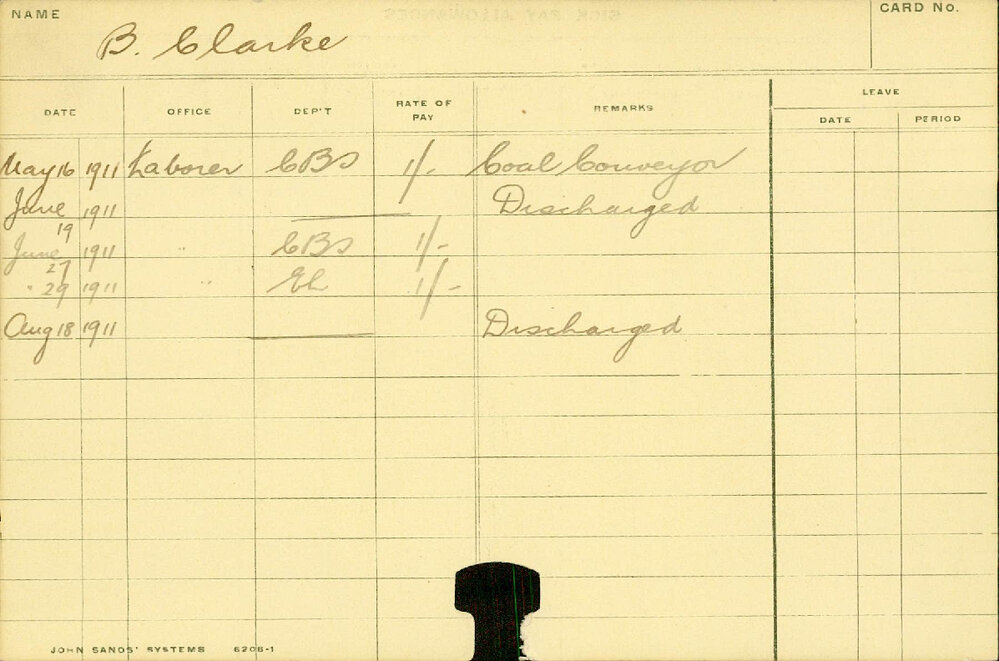 NAME
B. Clarke
CARD No.
DATE OFFICE DEP'T RATE OF PAY REMARKS LEAVE
DATE PERIOD
May 16 1911 Laborer CBS 1/- Coal Conveyor
June 19 1911 Discharged
June 27 1911 " CBS 1/-
" 29 1911 " 1/-
Aug 18 1911 Discharged
JOHN SANDS' SYSTEMS 6206-1